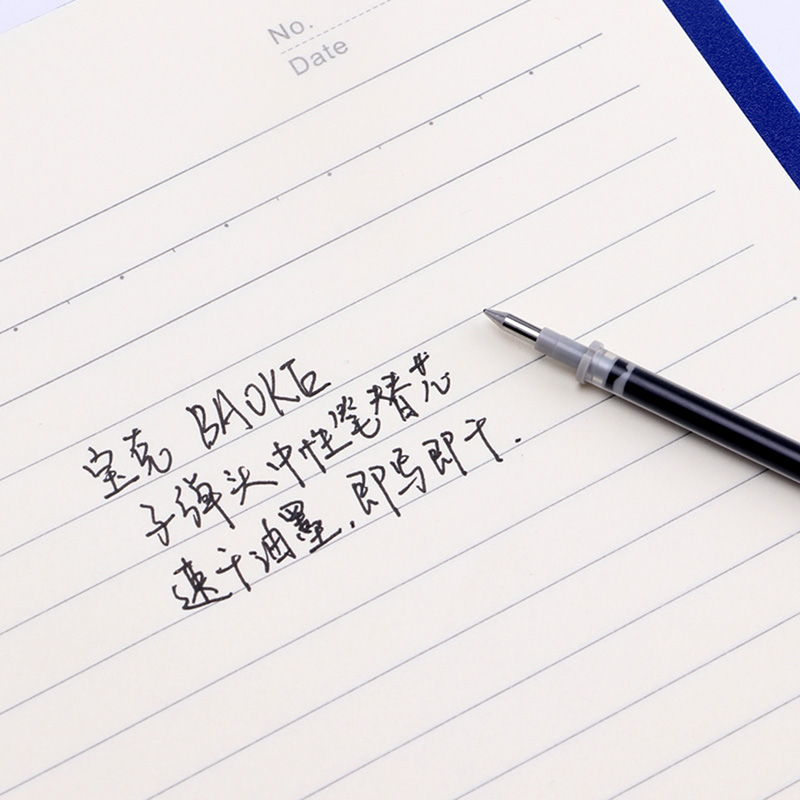 No.
Date
宝克 BAOKE
子弹头中性笔替芯
速干油墨.即写即干.